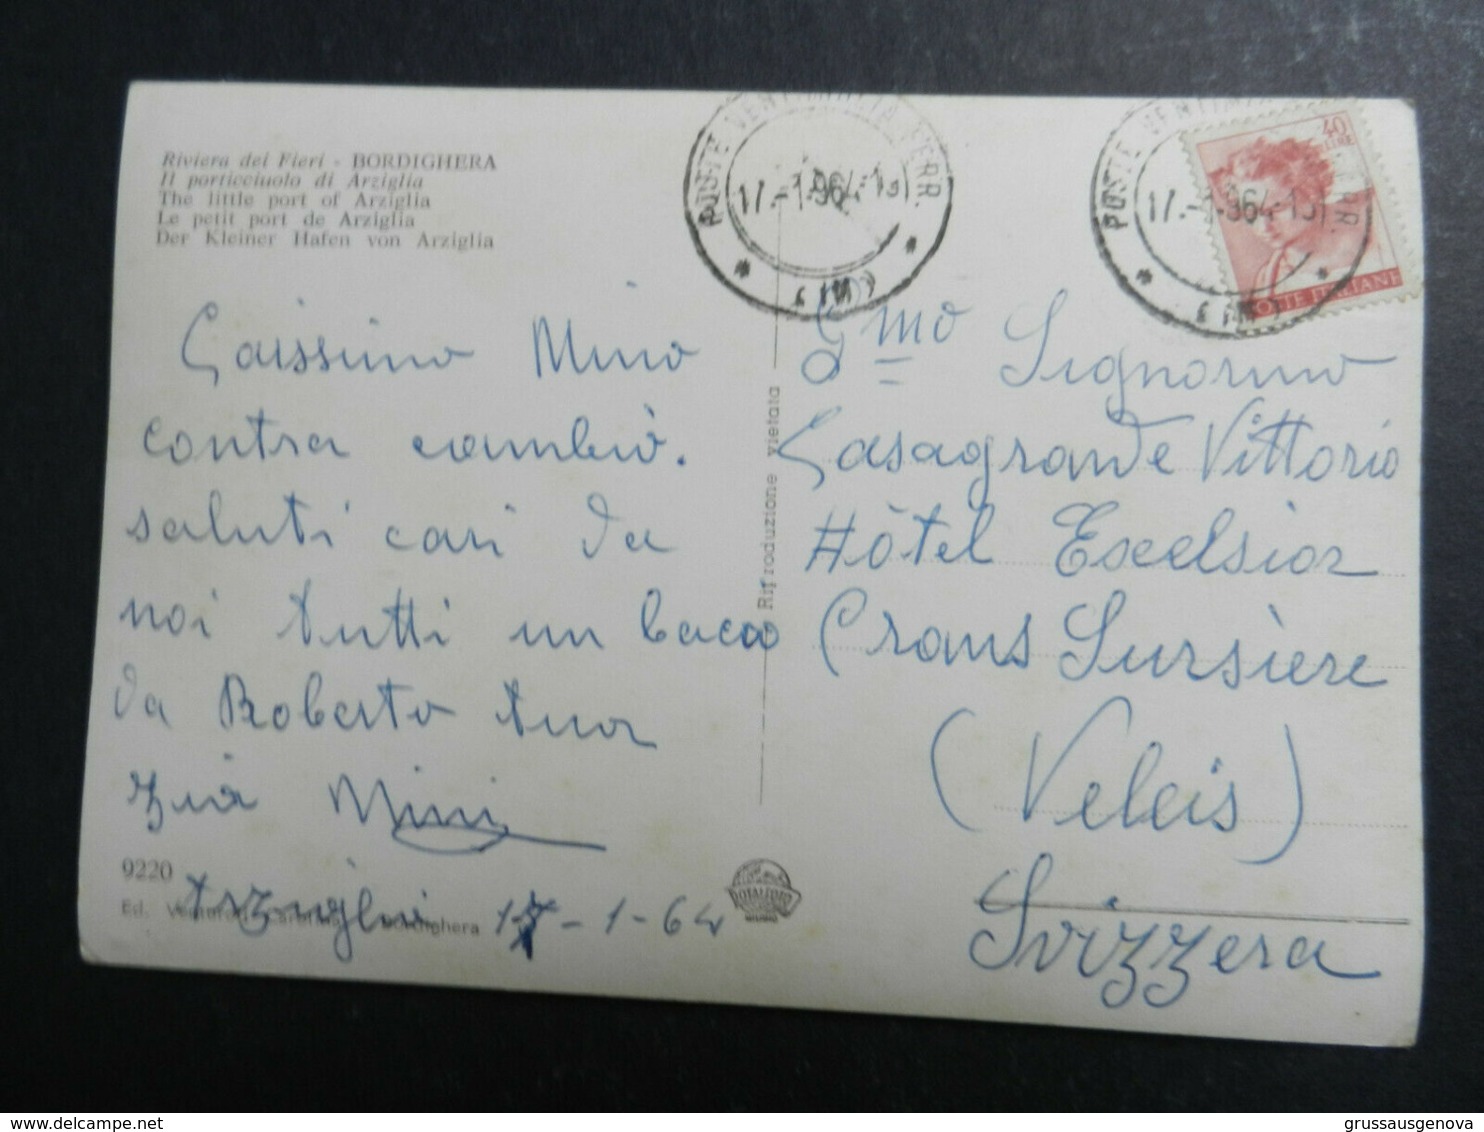 Riviera dei Fiori - BORDIGHERA
Il porticciuolo di Arziglia
The little port of Arziglia
Le petit port de Arziglia
Der Kleiner Hafen von Arziglia
POSTE VENTIMIGLIA FERR.
17.-1.964.-19
* (IM) *
POSTE VENTIMIGLIA FERR.
17.-1.964.-19
* (IM) *
40
LIRE
POSTE ITALIANE
Carissimo Mino
contra cambiò.
saluti cari da
noi tutti un bacio
da Roberto tua
zia Mini
Arziglia 17-1-64
9220
Ed. Bordighera
Riproduzione vietata
ROTALFOTO
Gmo Signorino
Casagrande Vittorio
Hôtel Excelsior
Crans Sursière
(Veleis)
Svizzera
grussausgenova